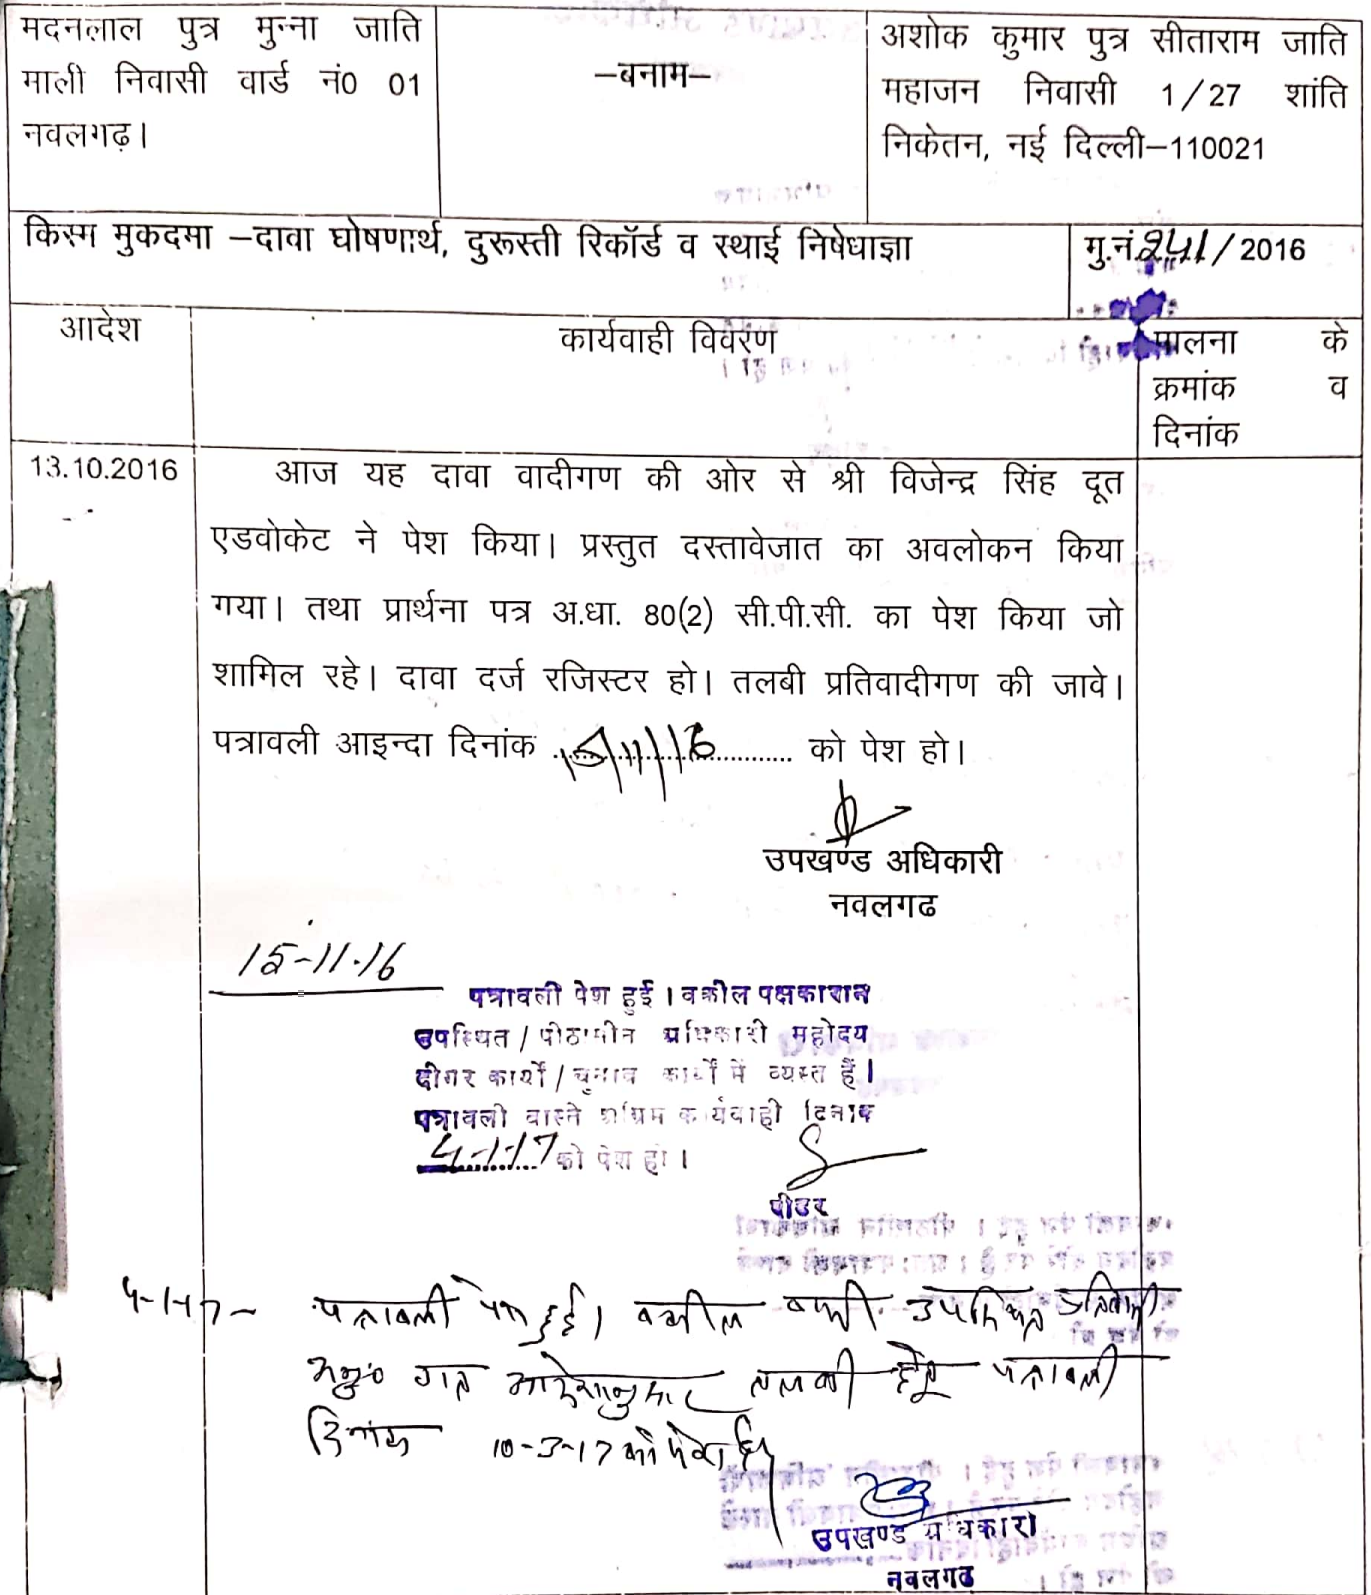 मदनलाल पुत्र मुन्ना जाति
माली निवासी वार्ड नं0 01
नवलगढ़।
–बनाम–
अशोक कुमार पुत्र सीताराम जाति
महाजन निवासी 1/27 शांति
निकेतन, नई दिल्ली–110021
किस्म मुकदमा –दावा घोषणार्थ, दुरूस्ती रिकॉर्ड व स्थाई निषेधाज्ञा
मु.नं.241/2016
आदेश
कार्यवाही विवरण
पालना के
क्रमांक व
दिनांक
13.10.2016
आज यह दावा वादीगण की ओर से श्री विजेन्द्र सिंह दूत
एडवोकेट ने पेश किया। प्रस्तुत दस्तावेजात का अवलोकन किया
गया। तथा प्रार्थना पत्र अ.धा. 80(2) सी.पी.सी. का पेश किया जो
शामिल रहे। दावा दर्ज रजिस्टर हो। तलबी प्रतिवादीगण की जावे।
पत्रावली आइन्दा दिनांक 15/11/16 को पेश हो।
उपखण्ड अधिकारी
नवलगढ
15-11-16
पत्रावली पेश हुई। वकील पक्षकारान
उपस्थित/पीठासीन अधिकारी महोदय
दीगर कार्यों/चुनाव कार्यों में व्यस्त हैं।
पत्रावली वास्ते अग्रिम कार्यवाही दिनांक
4-1-17 को पेश हो।
रीडर
4-1-17- पत्रावली पेश हुई। वकील वादी उपस्थित प्रतिवादी
गत आदेशानुसार तलबी हेतु पत्रावली
दिनांक 10-3-17 को पेश हो
उपखण्ड अधिकारी
नवलगढ